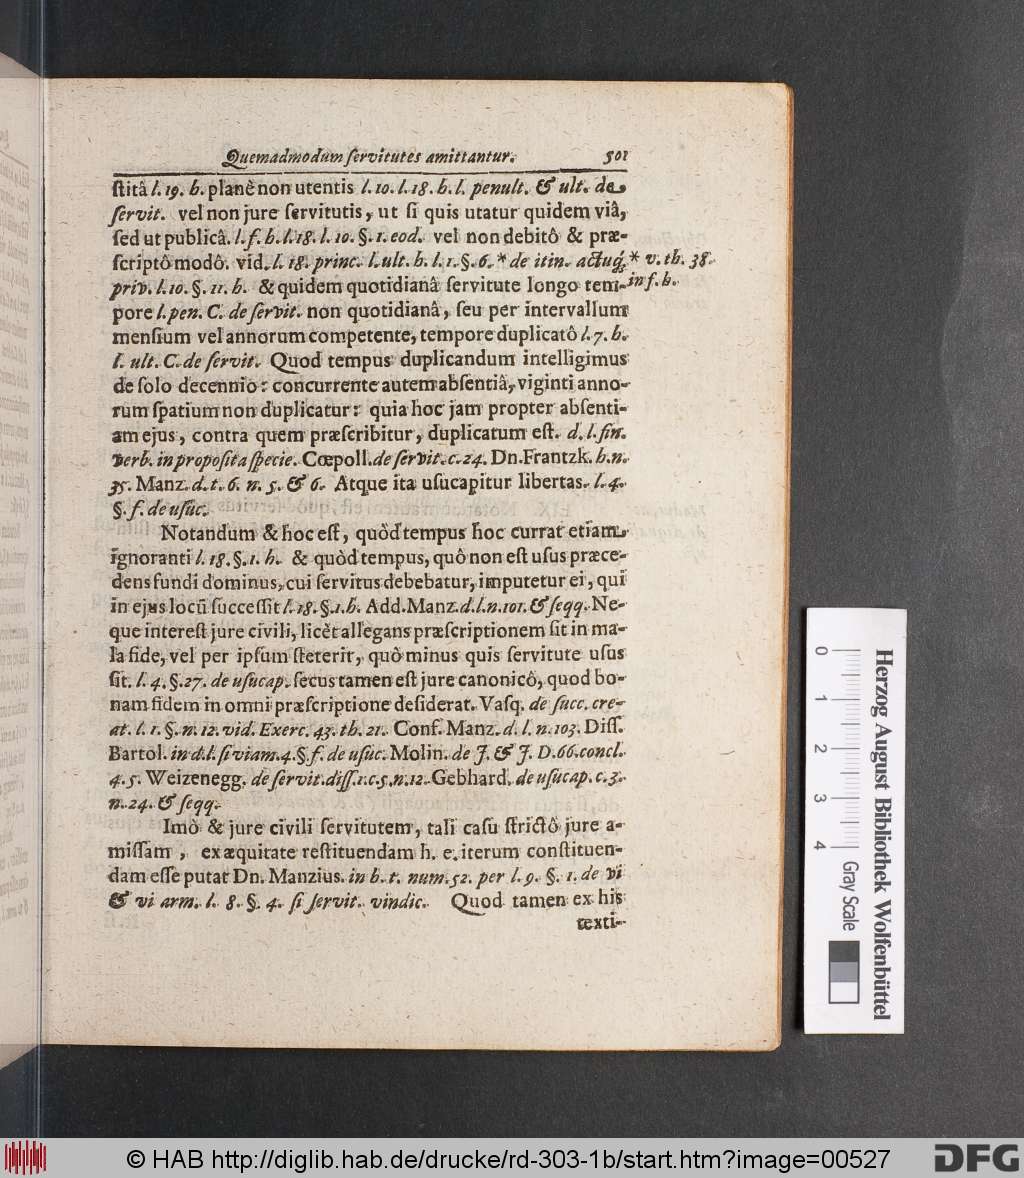 Quemadmodum servitutes amittantur. 501
stitâ l. 19. h. planè non utentis l. 10. l. 18. h. l. penult. & ult. de
servit. vel non jure servitutis, ut si quis utatur quidem viâ,
sed ut publicâ. l. f. h. l. 18. l. 10. §. 1. eod. vel non debitô & præ-
scriptô modô. vid. l. 18. princ. l. ult. h. l. 1. §. 6. * de itin. actuq́;
* v. th. 38.
in f. h.
priv. l. 10. §. 11. h. & quidem quotidianâ servitute longo tem-
pore l. pen. C. de servit. non quotidianâ, seu per intervallum
mensium vel annorum competente, tempore duplicatô l. 7. h.
l. ult. C. de servit. Quod tempus duplicandum intelligimus
de solo decennio: concurrente autem absentiâ, viginti anno-
rum spatium non duplicatur: quia hoc jam propter absenti-
am ejus, contra quem præscribitur, duplicatum est. d. l. fin.
verb. in proposita specie. Cœpoll. de servit. c. 24. Dn. Frantzk. h. n.
35. Manz. d. t. 6. n. 5. & 6. Atque ita usucapitur libertas. l. 4.
§. f. de usuc.
Notandum & hoc est, quòd tempus hoc currat etiam
ignoranti l. 18. §. 1. h. & quòd tempus, quô non est usus præce-
dens fundi dominus, cui servitus debebatur, imputetur ei, qui
in ejus locũ successit l. 18. §. 1. h. Add. Manz. d. l. n. 101. & seqq. Ne-
que interest jure civili, licèt allegans præscriptionem sit in ma-
la fide, vel per ipsum steterit, quô minus quis servitute usus
sit. l. 4. §. 27. de usucap. secus tamen est jure canonicô, quod bo-
nam fidem in omni præscriptione desiderat. Vasq. de succ. cre-
at. l. 1. §. n. 12. vid. Exerc. 43. th. 21. Conf. Manz. d. l. n. 103. Diss.
Bartol. in d. l. si viam. 4. §. f. de usuc. Molin. de J. & J. D. 66. concl.
4. 5. Weizenegg. de servit. diss. 1. c. 5. n. 12. Gebhard. de usucap. c. 3.
n. 24. & seqq.
Imò & jure civili servitutem, tali casu strictô jure a-
missam, ex æquitate restituendam h. e. iterum constituen-
dam esse putat Dn. Manzius. in h. t. num. 52. per l. 9. §. 1. de vi
& vi arm. l. 8. §. 4. si servit. vindic. Quod tamen ex his
texti-
Herzog August Bibliothek Wolfenbüttel
Gray Scale
0 1 2 3 4
© HAB http://diglib.hab.de/drucke/rd-303-1b/start.htm?image=00527
DFG